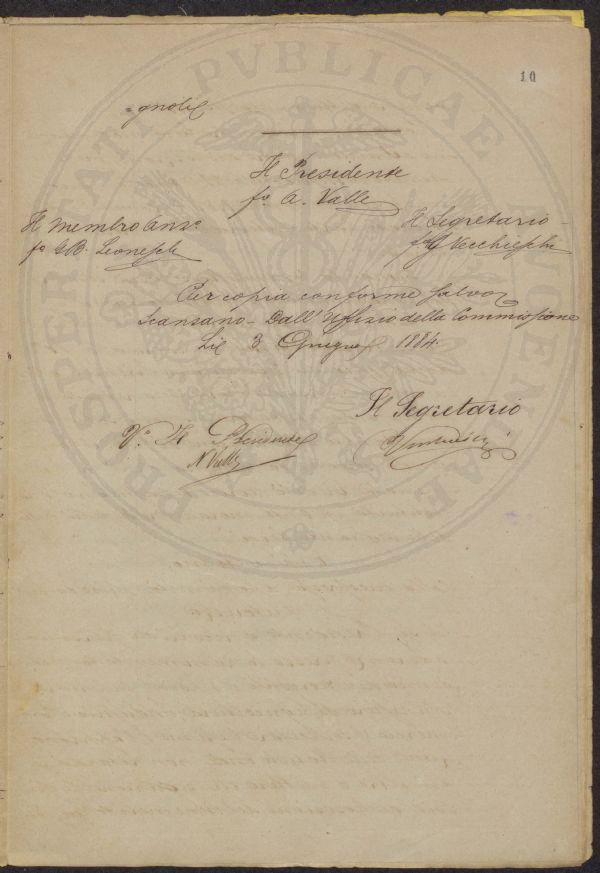 10
= gnolie
Il Presidente
fo A. Valle
Il Membro Anzo
fo GB. Leoneschi
Il Segretario
fo Vecchieschi
Per copia conforme salvo
Scansano - Dall' Uffizio della Commissione
Lie 3. Giugno 1884.
Il Segretario
Vo. Il Presidente
A Valle
PROSPERITATI PVBLICAE